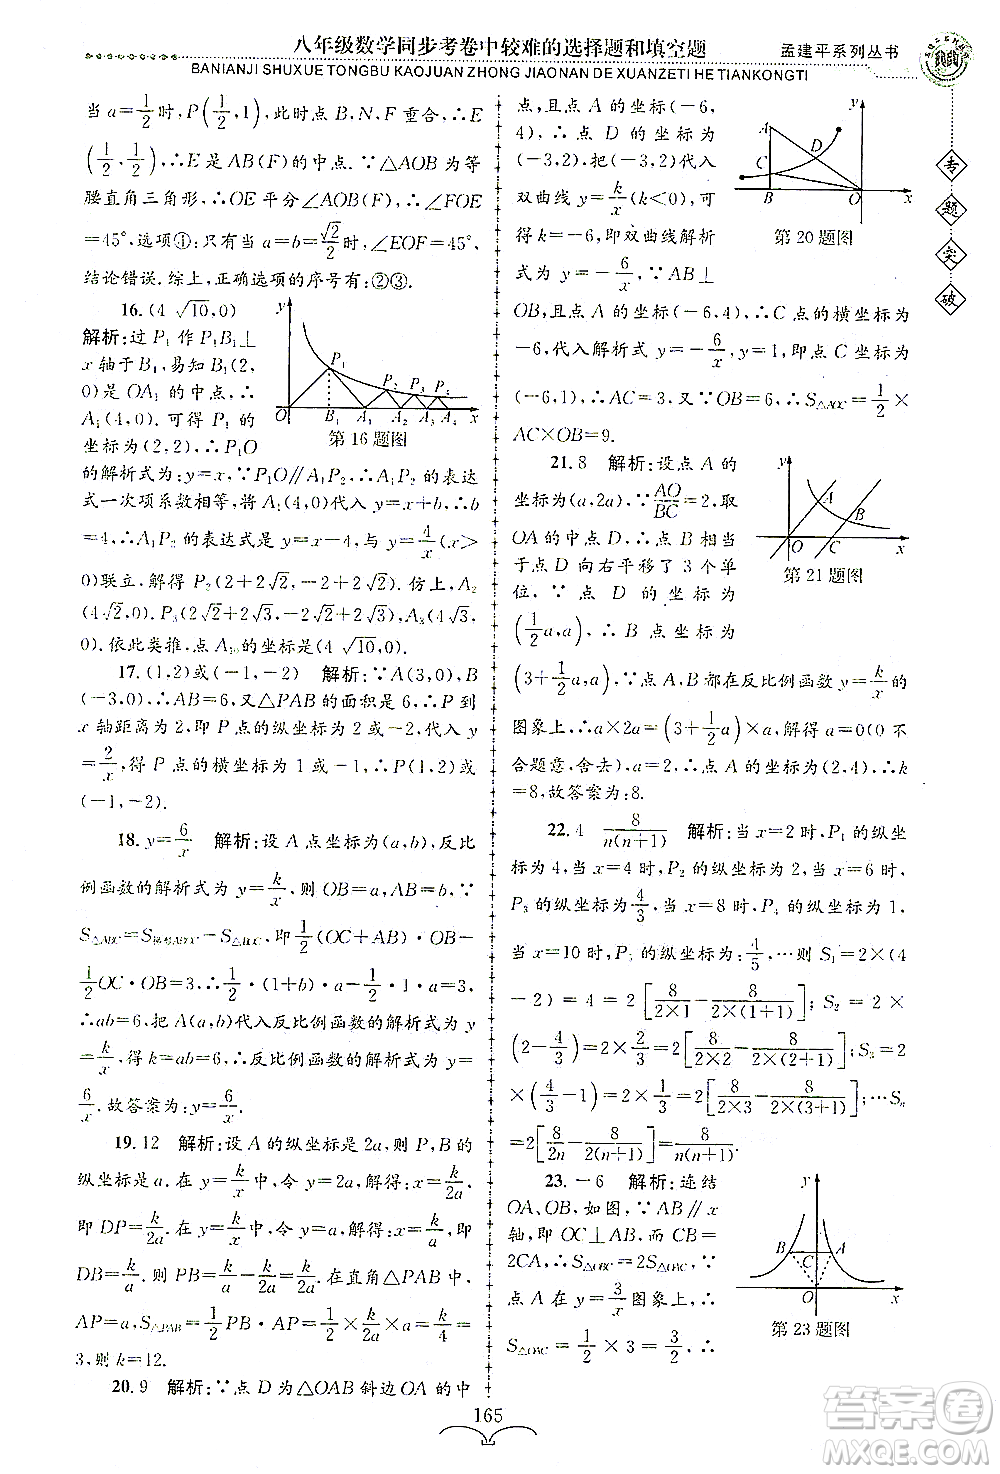 八年级数学同步考卷中较难的选择题和填空题
孟建平系列丛书
BANIANJI SHUXUE TONGBU KAOJUAN ZHONG JIAONAN DE XUANZETI HE TIANKONGTI
专题突破
当 a=1/2 时,P(1/2,1),此时点 B、N、F 重合,∴E
(1/2,1/2),∴E 是 AB(F)的中点.∵△AOB 为等
腰直角三角形,∴OE 平分∠AOB(F),∴∠FOE
=45°.选项①:只有当 a=b=√2/2 时,∠EOF=45°,
结论错误.综上,正确选项的序号有:②③.
16.(4√10,0)
解析:过 P₁ 作 P₁B₁⊥
x 轴于 B₁,易知 B₁(2,
0)是 OA₁ 的中点,∴
A₁(4,0).可得 P₁ 的坐
标为(2,2),∴P₁O
第16题图
的解析式为:y=x,∵P₁O∥A₁P₂,∴A₁P₂ 的表达
式一次项系数相等,将 A₁(4,0)代入 y=x+b,∴b
=-4,∴A₁P₂ 的表达式是 y=x-4,与 y=4/x(x>
0)联立,解得 P₂(2+2√2,-2+2√2).仿上,A₂
(4√2,0).P₃(2√2+2√3,-2√2+2√3),A₃(4√3,
0).依此类推,点 A₁₀的坐标是(4√10,0).
17.(1,2)或(-1,-2) 解析:∵A(3,0),B
(-3,0),∴AB=6,又△PAB 的面积是 6,∴P 到
x 轴距离为 2,即 P 点的纵坐标为 2 或-2,代入 y
=2/x,可得 P 点的横坐标为 1 或-1,∴P(1,2)或
(-1,-2).
18.y=6/x 解析:设 A 点坐标为(a,b),反比
例函数的解析式为 y=k/x,则 OB=a,AB=b,∵
S△ABC=S梯形ABOC-S△BOC,即 1/2(OC+AB)·OB-
1/2 OC·OB=3,∴1/2(1+b)·a-1/2·1·a=3,
∴ab=6,把 A(a,b)代入反比例函数的解析式为 y
=k/x,得 k=ab=6,∴反比例函数的解析式为 y=
6/x.故答案为:y=6/x.
19.12 解析:设 A 的纵坐标是 2a,则 P,B 的
纵坐标是 a.在 y=k/x 中,令 y=2a,解得:x=k/2a,
即 DP=k/2a.在 y=k/x 中,令 y=a,解得:x=k/a,即
DB=k/a.则 PB=k/a-k/2a=k/2a.在直角△PAB 中,
AP=a,S△PAB=1/2 PB·AP=1/2×k/2a×a=k/4=
3,则 k=12.
20.9 解析:∵点 D 为△OAB 斜边 OA 的中
点,且点 A 的坐标(-6,
4),∴点 D 的坐标为
(-3,2).把(-3,2)代入
双曲线 y=k/x(k<0),可
得 k=-6,即双曲线解析
第20题图
式为 y=-6/x,∵AB⊥
OB,且点 A 的坐标(-6,4),∴C 点的横坐标为
-6,代入解析式 y=-6/x,y=1,即点 C 坐标为
(-6,1),∴AC=3,又∵OB=6,∴S△AOC=1/2×
AC×OB=9.
21.8 解析:设点 A 的
坐标为(a,2a),∵AO/BC=2,取
OA 的中点 D,∴点 B 相当
于点 D 向右平移了 3 个单
位,∵点 D 的坐标为
第21题图
(1/2 a,a),∴B 点坐标为
(3+1/2 a,a),∵点 A,B 都在反比例函数 y=k/x 的
图象上,∴a×2a=(3+1/2 a)×a,解得:a=0(0 不
合题意,舍去),a=2,∴点 A 的坐标为(2,4),∴k
=8.故答案为:8.
22.4 8/n(n+1) 解析:当 x=2 时,P₁ 的纵坐
标为 4,当 x=4 时,P₂ 的纵坐标为 2,当 x=6 时,
P₃ 的纵坐标为 4/3,当 x=8 时,P₄ 的纵坐标为 1,
当 x=10 时,P₅ 的纵坐标为:4/5,…则 S₁=2×(4
-2)=4=2[8/2×1-8/2×(1+1)];S₂=2×
(2-4/3)=4/3=2[8/2×2-8/2×(2+1)];S₃=2
×(4/3-1)=2[8/2×3-8/2×(3+1)];…Sₙ
=2[8/2n-8/2(n+1)]=8/n(n+1).
23.-6 解析:连结
OA、OB,如图,∵AB∥x
轴,∴OC⊥AB,∵CB=
2CA,∴S△OBC=2S△OAC,∵
点 A 在 y=3/x 图象上,∴
第23题图
S△OAC=1/2×3=3/2,∴
165